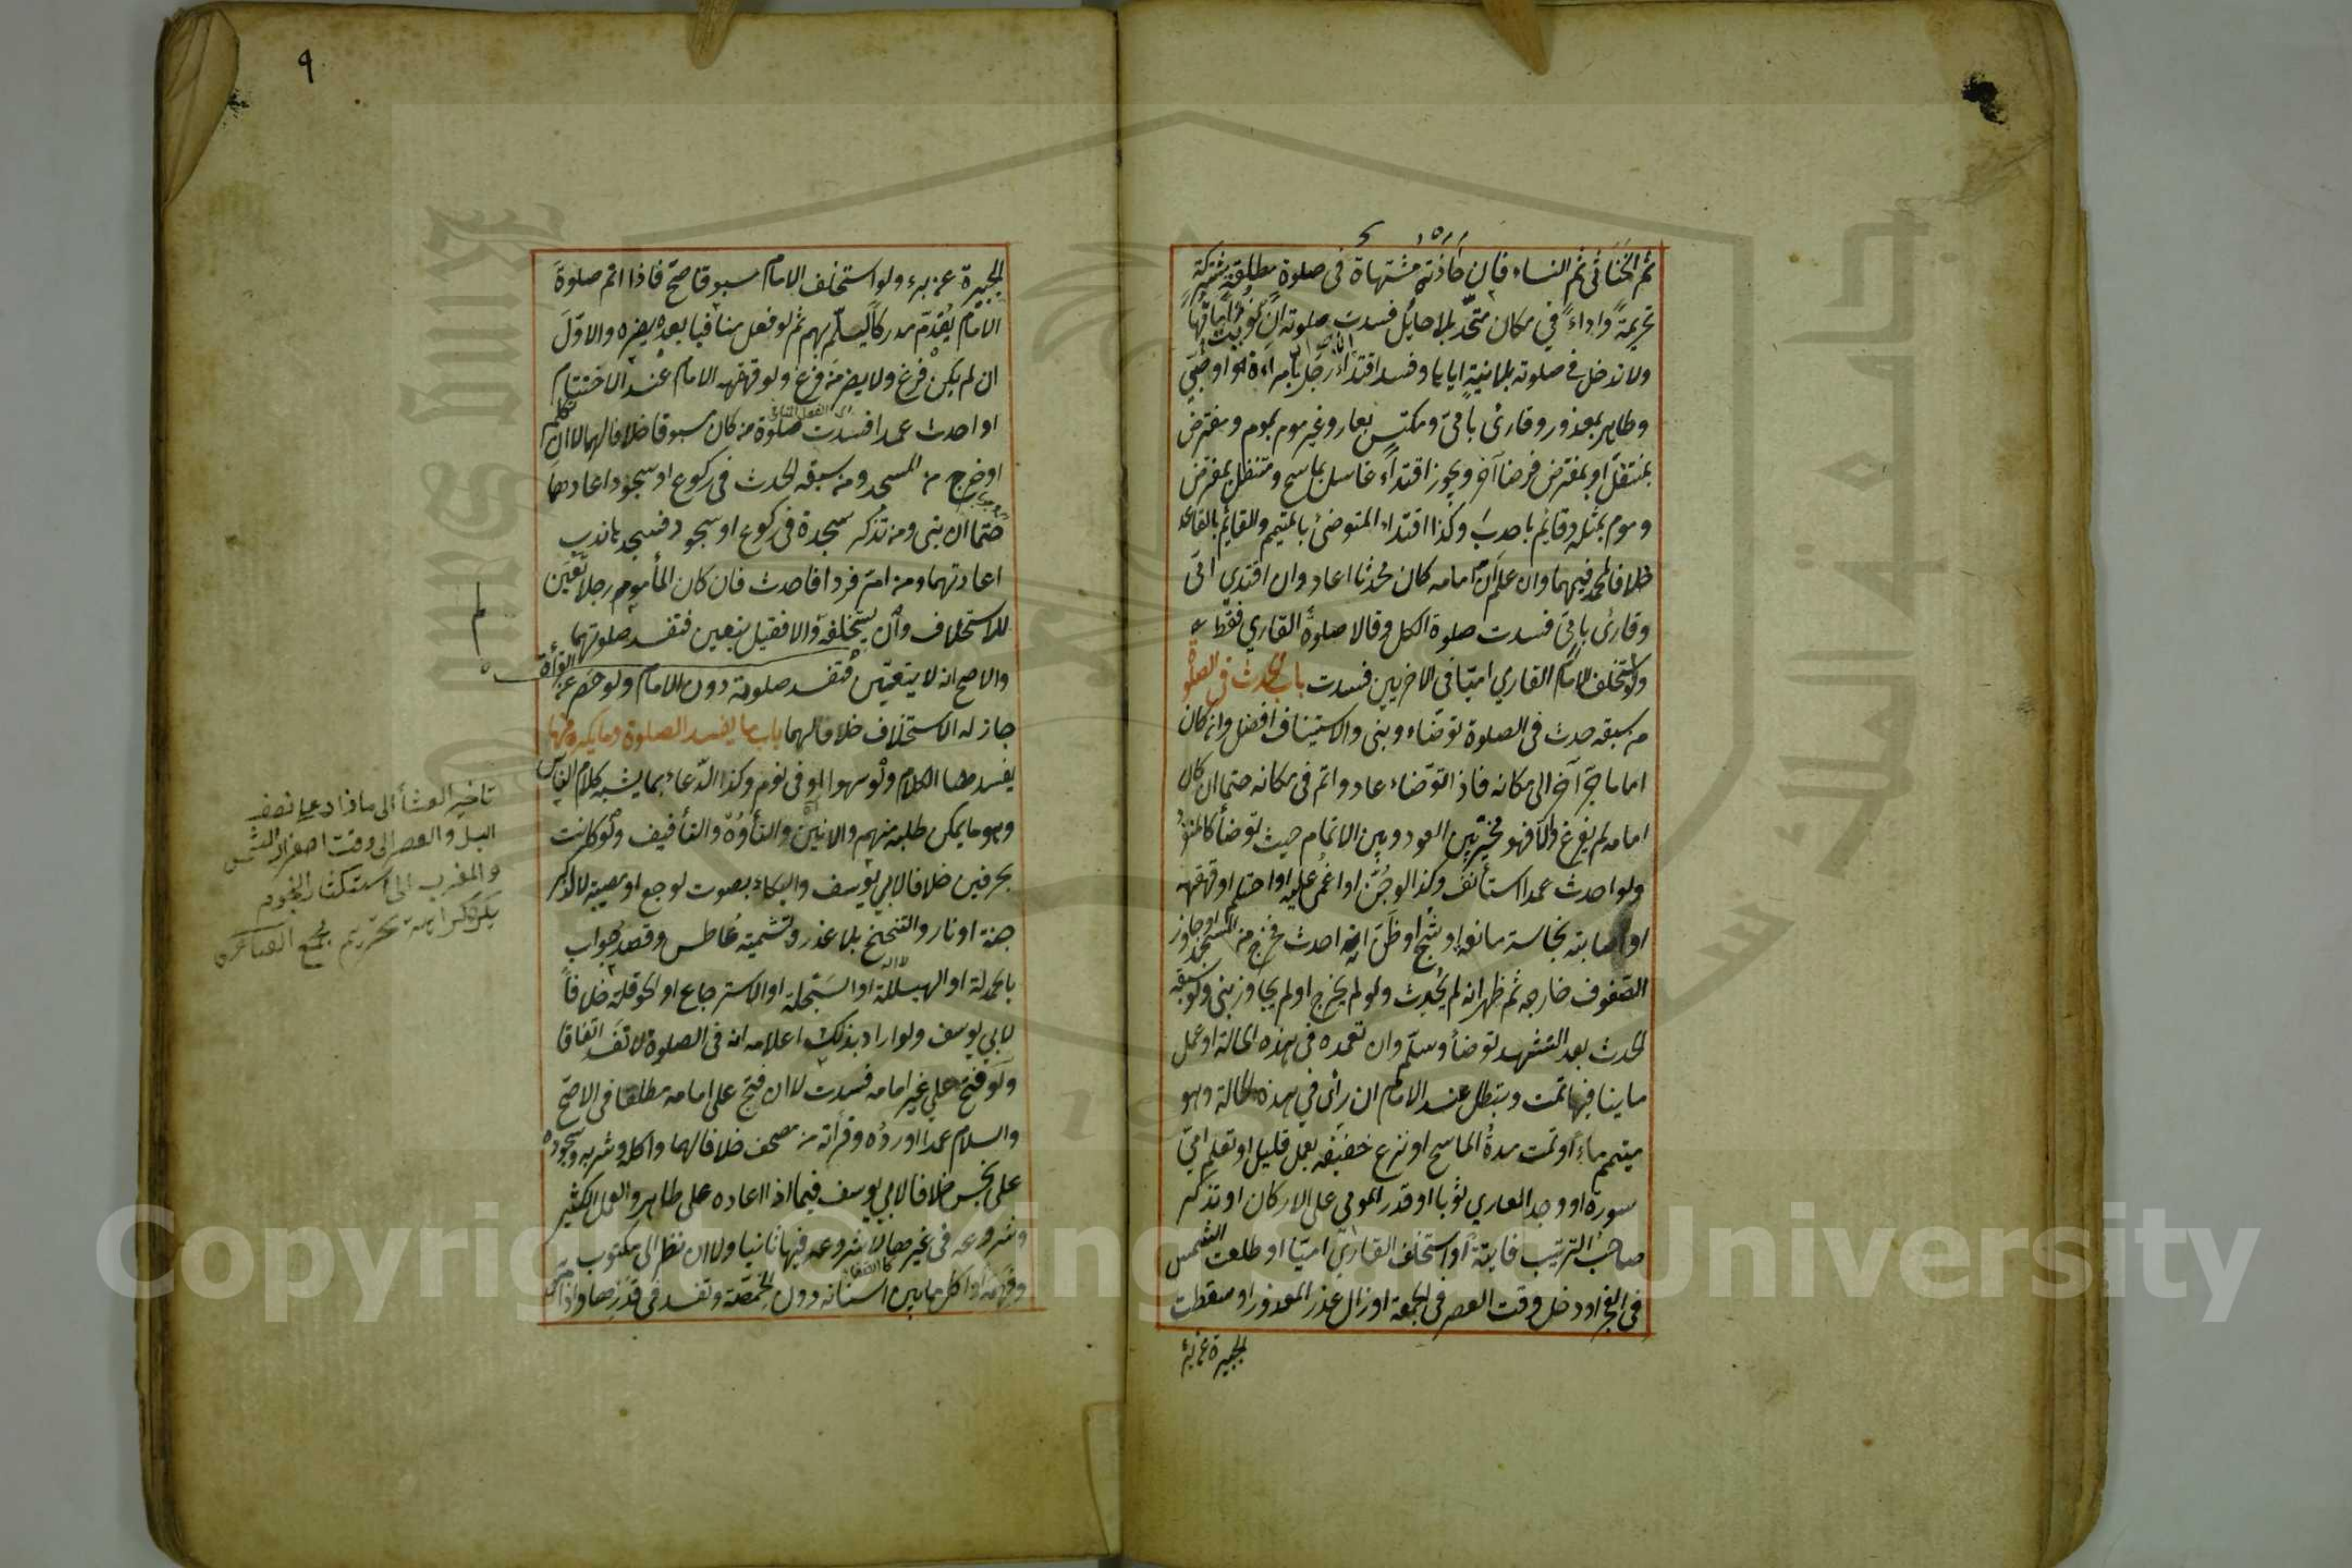 ثم الخناثى ثم النساء فان حاذته مشتهاة فى صلوة مطلقة مشتركة
تحريمة واداء في مكان متحد بلا حايل فسدت صلوته ان نويت امامتها
ولا تدخل فى صلوته بلا نية اياها وفسد اقتداء رجل بامراءة او صبي
وطاهر بمعذور وقارئ بامى ومكتس بعار وغير موم بموم ومفترض
بمتنفل او بمفترض فرضا آخر ويجوز اقتداء غاسل بماسح ومتنفل بمفترض
وموم بمثله وقايم باحدب وكذا اقتداء المتوضئ بالمتيمم والقايم بالقاعد
خلافا لمحمد فيهما وان علم ان امامه كان محدثا اعاد وان اقتدي امى
وقارئ بامى فسدت صلوة الكل وقالا صلوة القاري فقط
ولو استخلف الامام القاري اميا فى الاخريين فسدت باب الحدث فى الصلوة
من سبقه حدث فى الصلوة توضاء وبنى والاستيناف افضل وان كان
اماما جر آخر الى مكانه فاذا توضاء عاد واتم فى مكانه حتما ان كان
امامه لم يفرغ والا فهو مخير بين العود وبين الاتمام حيث توضأ كالمنفرد
ولو احدث عمدا استأنف وكذا لو جن او اغمى عليه او احتلم او قهقهه
او اصابته نجاسة مانعة او شج او ظن انه احدث فخرج من المسجد او جاوز
الصفوف خارجه ثم ظهر انه لم يحدث ولو لم يخرج او لم يجاوز بنى ولو سبقه
الحدث بعد التشهد توضأ وسلم وان تعمده فى هذه الحالة او عمل
ما ينافيها تمت وتبطل عند الامام ان رأى في هذه الحالة وهو
متيمم ماء او تمت مدة الماسح او نزع خفيفه بعمل قليل او تعلم امي
سورة او وجد العاري ثوبا او قدر المومي على الاركان او تذكر
صاحب الترتيب فايتة او استخلف القاري اميا او طلعت الشمس
فى الفجر او دخل وقت العصر فى الجمعة او زال عذر المعذور او سقطت
الجبيرة عن برء
٩
الجبيرة عن برء ولو استخلف الامام مسبوقا صح فاذا اتم صلوة
الامام يقدم مدركا ليسلم بهم ثم لو فعل منافيا بعده يضره والاول
ان لم يكن فرغ ولا يضر من فرغ ولو قهقهه الامام عند الاختتام
او احدث عمدا فسدت صلوة من كان مسبوقا خلافا لهما لا ان تكلم
او خرج من المسجد ومن سبقه الحدث فى ركوع او سجود اعادهما
حتما ان بنى ومن تذكر سجدة فى ركوع او سجود فسجدها ندب
اعادتهما ومن ام فردا فاحدث فان كان المأموم رجلا تعين
للاستخلاف وان لم يستخلفه والا فقيل يتعين فتفسد صلوتهما
والاصح انه لا يتعين فتفسد صلوته دون الامام ولو حصر عن القرأة
جاز له الاستخلاف خلافا لهما باب ما يفسد الصلوة وما يكره فيها
يفسدها الكلام ولو سهوا او فى نوم وكذا الدعاء بما يشبه كلام الناس
وهو ما يمكن طلبه منهم والانين والتأوه والتأفيف ولو كانت
بحرفين خلافا لابي يوسف والبكاء بصوت لوجع او مصيبة لا لذكر
جنة او نار والتنحنح بلا عذر وتشميته عاطس وقصد جواب
بالحمدلة او الهيللة او السبحلة او الاسترجاع او الحوقلة خلافا
لابي يوسف ولو اراد بذلك اعلامه انه فى الصلوة لا تفسد اتفاقا
ولو فتح على غير امامه فسدت لا ان فتح على امامه مطلقا فى الاصح
والسلام عمدا او رده وقرأته من مصحف خلافا لهما واكله وشربه وسجوده
على نجس خلافا لابي يوسف فيما اذا اعاده على طاهر والعمل الكثير
وشروعه فى غيرها لا شروعه فيها ثانيا ولا ان نظر الى مكتوب
وفهمه او اكل ما بين اسنانه دون الحمصة وتفسد فى قدرها
تاخير العشأ الى ما زاد على نصف
اليل والعصر الى وقت اصفرار الشمس
والمغرب الى استكثار النجوم
يكره كراهة تحريم
Copyright © King Saud University
جامعة الملك سعود